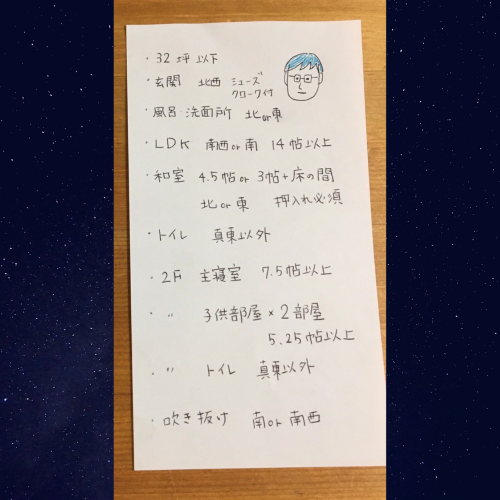 ・32坪以下
・玄関 北西 シューズ
クローク付
・風呂・洗面所 北or東
・LDK 南西or南 14帖以上
・和室 4.5帖or 3帖+床の間
北or東 押入れ必須
・トイレ 真東以外
・2F 主寝室 7.5帖以上
・〃 子供部屋×2部屋
5.25帖以上
・〃 トイレ 真東以外
・吹き抜け 南or南西